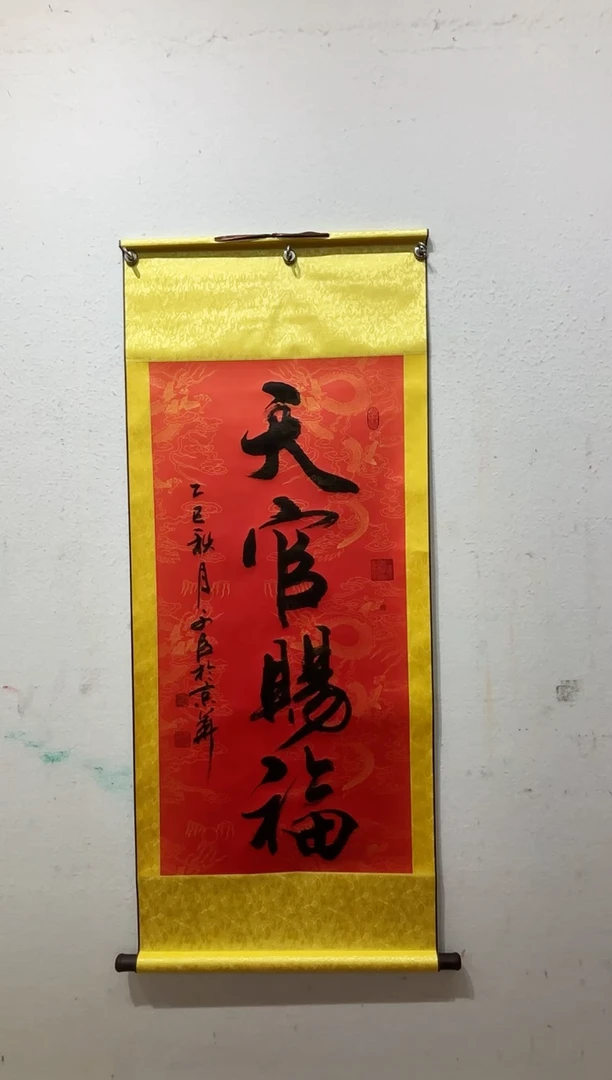 天官賜福
乙巳秋月子民於京華